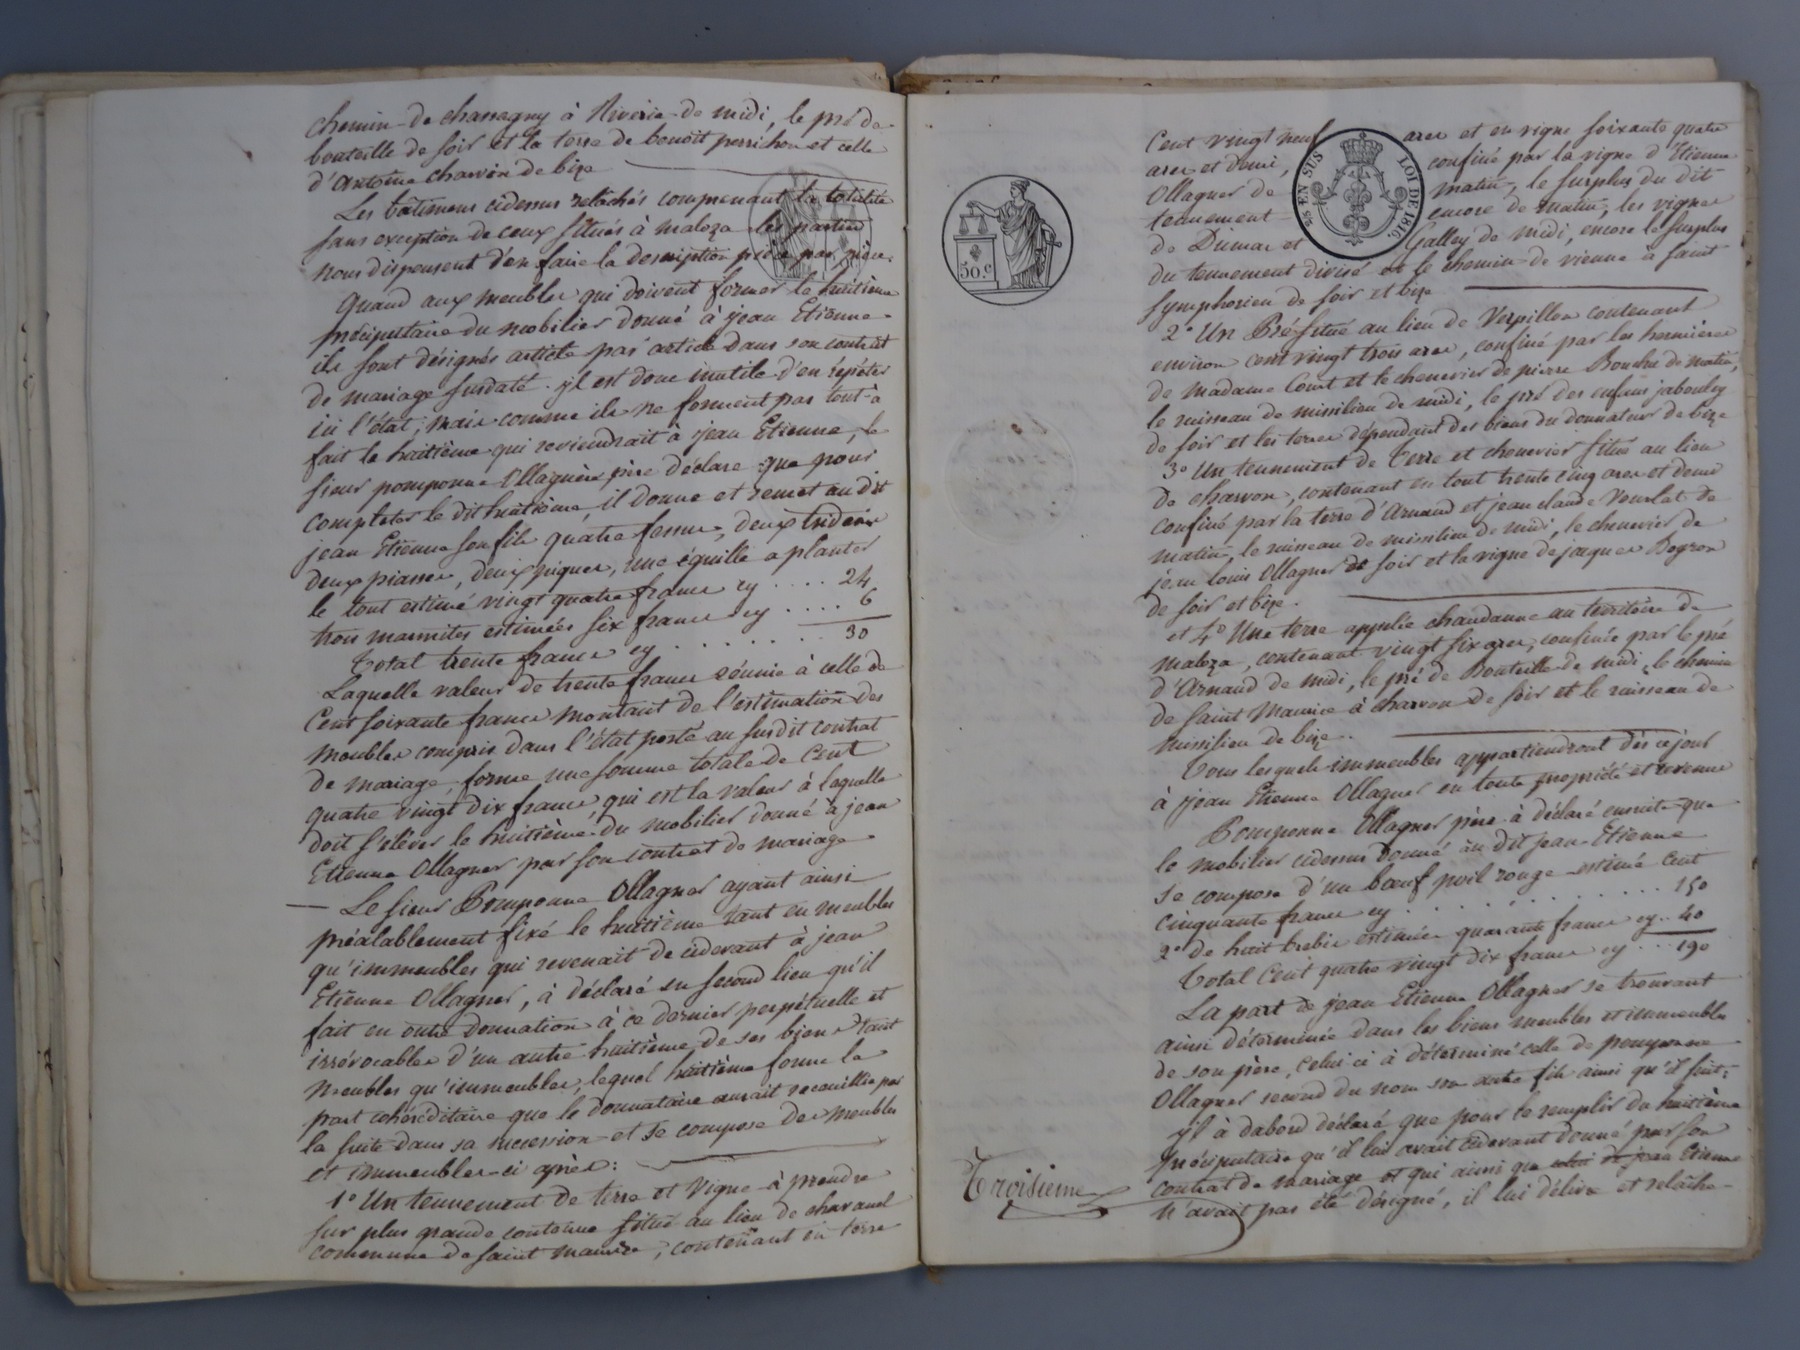 chemin de chassagny à Riverie de midi, le pré de
bouteille de soir et la terre de benoît perrichon et celle
d'Antoine charvin de bize
Les bâtimens cidessus relachés comprenant la totalité
sans exception de ceux situés à maloza les parties
nous dispensent d'en faire la description pièce par pièce.
Quand aux meubles qui doivent former le huitième
préciputaire du mobilier donné à jean Etienne
ils sont désignés article par article dans son contrat
de mariage susdaté. yl est donc inutile d'en répéter
ici l'état; mais comme ils ne forment pas tout-à
fait le huitième qui reviendrait à jean Etienne, le
sieur pomponne Ollagnier père déclare que pour
completer le dit huitième, il donne et remet au dit
jean Etienne son fils quatre , deux tridents
deux piasses, deux piques, une éguille a planter
le tout estimé vingt quatre francs cy .... 24
trois marmites estimées six francs cy .... 6
Total trente francs cy . . . . . . . 30
Laquelle valeur de trente francs réunie à celle de
Cent soixante francs montant de l'estimation des
meubles compris dans l'état porté au susdit contrat
de mariage, forme une somme totale de Cent
quatre vingt dix francs, qui est la valeur à laquelle
doit s'élever le huitième du mobilier donné à jean
Etienne Ollagner par son contrat de mariage
— Le sieur Pomponne Ollagner ayant ainsi
préalablement fixé le huitième tant en meubles
qu'immeubles qui revenait de cidevant à jean
Etienne Ollagner, à déclaré en second lieu qu'il
fait en outre donnation à ce dernier perpétuelle et
irrévocable d'un autre huitième de ses biens tant
meubles qu'immeubles, lequel huitième forme la
part cohéréditaire que le donnataire aurait recueillie par
la suite dans sa succession et se compose des meubles
et immeubles ci après:
1° Un tennement de terre et vigne à prendre
sur plus grande contenue situé au lieu de charanel
commune de saint maurice, contenant en terre
25 EN SUS LOI DE 1816.
50.c
Cent vingt neuf ares et en vigne soixante quatre
ares et demi, confiné par la vigne d'Etienne
Ollagner de matin, le surplus du dit
tennement encore de matin, les vignes
de Dumas et Galley de midi, encore le surplus
du tennement divisé et le chemin de vienne à saint
symphorien de soir et bize
2° Un Pré situé au lieu de Verpillon contenant
environ cent vingt trois ares, confiné par les hermières
de madame Court et le chenevier de pierre Bouchu de matin,
le ruisseau de missilieu de midi, le pré des enfans jaboulay
de soir et les terres dépendant des biens du donnateur de bize
3° Un tennement de Terre et chenevier situé au lieu
de charvon, contenant en tout trente cinq ares et demi
confiné par la terre d'Arnaud et jean claude Veurlat de
matin, le ruisseau de missilieu de midi, le chenevier de
jean louis Ollagner de soir et la vigne de jacques Degron
de soir et bize.
et 4° Une terre appelée chaudanne au territoire de
maloza, contenant vingt six ares, confinée par le pré
d'Arnaud de midi, le pré de Bouteille de midi, le chemin
de saint Maurice à charvon de soir et le ruisseau de
missilieu de bize.
Tous lesquels immeubles appartiendront dès ce jour
à jean Etienne Ollagner en toute propriété et revenu
Pomponne Ollagner père à déclaré ensuite que
le mobilier cidessus donné au dit jean-Etienne
se compose d'un bœuf poil rouge estimé Cent
cinquante francs cy . . . . . . . . . . 150
2° de huit brebis estimées quarante francs cy .. 40
Total Cent quatre vingt dix francs cy ... 190
La part de jean Etienne Ollagner se trouvant
ainsi déterminée dans les biens meubles et immeubles
de son père, celui ci à déterminé celle de pomponne
Ollagner second du nom son autre fils ainsi qu'il suit:
yl à dabord déclaré que pour le remplir du huitième
préciputaire qu'il lui avait cidevant donné par son
contrat de mariage et qui ainsi que celui de jean Etienne
n'avait pas été désigné, il lui délivre et relâche
Troisieme